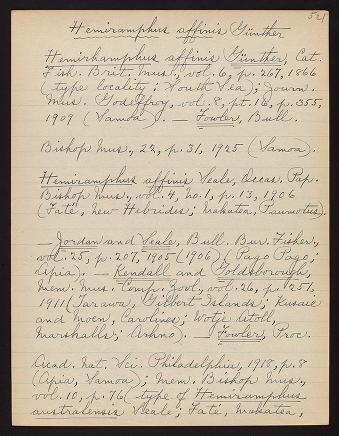 521
Hemiramphus affinis Günther
Hemirhamphus affinis Günther, Cat.
Fish. Brit. Mus., vol. 6, p. 267, 1866
(type locality: South Sea); Journ.
Mus. Godeffroy, vol. 8, pt. 16, p. 355,
1909 (Samoa). — Fowler, Bull.
Bishop Mus., 22, p. 31, 1925 (Samoa).
Hemiramphus affinis Seale, Occas. Pap.
Bishop Mus., vol. 4, no. 1, p. 13, 1906
(Fate, New Hebrides; Makatea, Paumotus).
— Jordan and Seale, Bull. Bur. Fisher.,
vol. 25, p. 207, 1905 (1906) (Pago Pago;
Apia). — Kendall and Goldsborough,
Mem. Mus. Comp. Zool., vol. 26, p. 251,
1911 (Tarawa, Gilbert Islands; Kusaie
and Moen, Carolines; Wotje Atoll,
Marshalls; Arhno). — Fowler, Proc.
Acad. Nat. Sci. Philadelphia, 1918, p. 8
(Apia, Samoa); Mem. Bishop Mus.,
vol. 10, p. 76 (type of Hemiramphus
australensis Seale; Fate, Makatea,